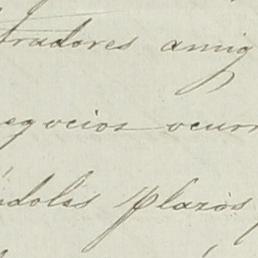 tradores amig
egocios ocurr
ndoles plazos